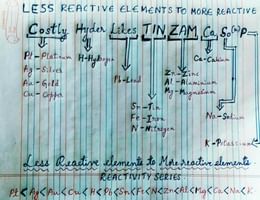 LESS REACTIVE ELEMENTS TO MORE REACTIVE
Costly Hyder Likes TIN ZAM Ca So(n) P
Pt - Platinum
Ag - Silver
Au - Gold
Cu - Copper
H - Hydrogen
Pb - Lead
Sn - Tin
Fe - Iron
N - Nitrogen
Zn - Zinc
Al - Aluminium
Mg - Magnesium
Ca - Calcium
Na - Sodium
K - Potassium
Less Reactive elements to More reactive elements.
REACTIVITY SERIES
Pt < Ag < Au < Cu < H < Pb < Sn < Fe < N < Zn < Al < Mg < Ca < Na < K